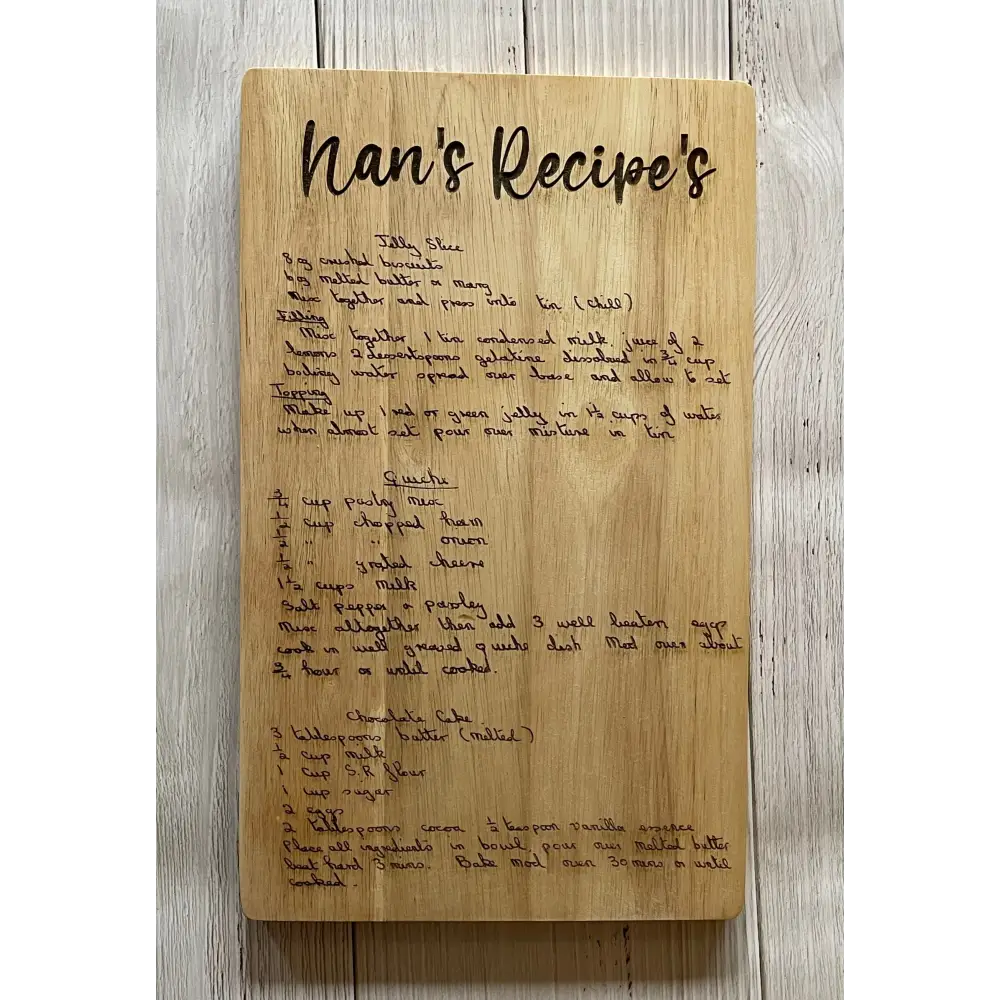 Nan's Recipe's
Jelly Slice
8 oz crushed biscuits
6 oz melted butter or marg
Mix together and press into tin (chill)
Filling
Mix together 1 tin condensed milk. juice of 2
lemons 2 dessertspoons gelatine dissolved in 3/4 cup
boiling water spread over base and allow to set
Topping
Make up 1 red or green jelly in 1½ cups of water
when almost set pour over mixture in tin
Quiche
3/4 cup pastry mix
1/2 cup chopped ham
1/2 " " onion
1/2 " grated cheese
1 1/2 cups milk
Salt pepper & parsley
Mix altogether then add 3 well beaten eggs
cook in well greased quiche dish Mod oven about
3/4 hour or until cooked.
Chocolate Cake
3 tablespoons butter (melted)
1/2 cup milk
1 cup S.R flour
1 cup sugar
2 eggs
2 tablespoons cocoa 1/2 teaspoon vanilla essence
Place all ingredients in bowl, pour over melted butter
beat hard 3 mins. Bake mod oven 30 mins or until
cooked.